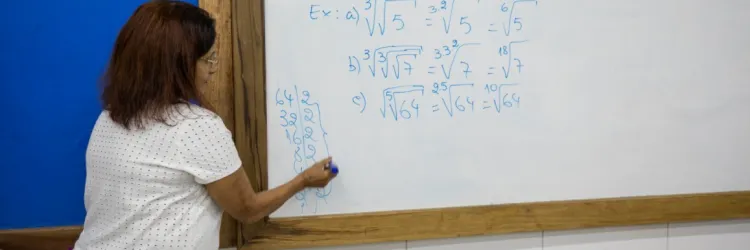 Ex: a) ³√√5 = ³²√5 = ⁶√5
b) ³√³√√7 = ³³²√7 = ¹⁸√7
c) √⁵√64 = ²⁵√64 = ¹⁰√64
64 2
32 2
16 2
2